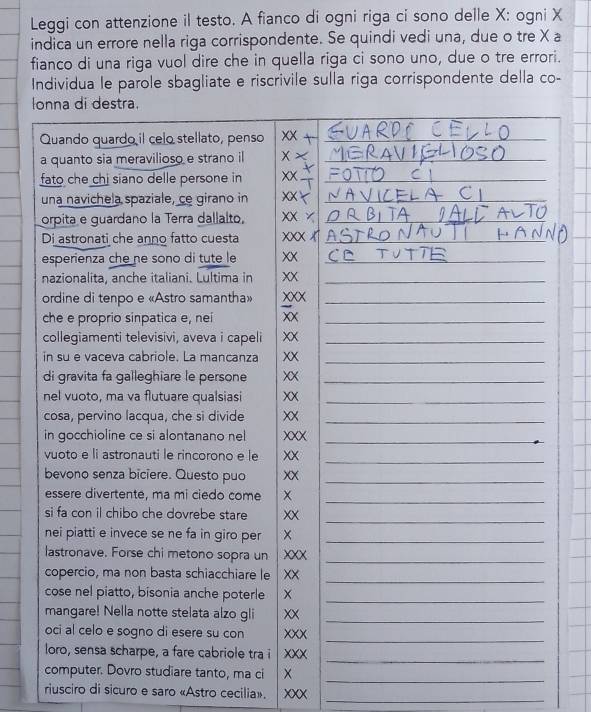 Leggi con attenzione il testo. A fianco di ogni riga ci sono delle X: ogni X
indica un errore nella riga corrispondente. Se quindi vedi una, due o tre X a
fianco di una riga vuol dire che in quella riga ci sono uno, due o tre errori.
Individua le parole sbagliate e riscrivile sulla riga corrispondente della co-
lonna di destra.
Quando quardo il celo stellato, penso XX GUARDO CELLO
a quanto sia meravilioso e strano il X MERAVIGLIOSO
fato che chi siano delle persone in XX FOTTO CI
una navichela spaziale, ce girano in XX NAVICELA CI
orpita e guardano la Terra dallalto. XX ORBITA DALL ALTO
Di astronati che anno fatto cuesta XXX ASTRONAUTI HANNO
esperienza che ne sono di tute le XX CE TUTTE
nazionalita, anche italiani. Lultima in XX
ordine di tenpo e «Astro samantha» XXX
che e proprio sinpatica e, nei XX
collegiamenti televisivi, aveva i capeli XX
in su e vaceva cabriole. La mancanza XX
di gravita fa galleghiare le persone XX
nel vuoto, ma va flutuare qualsiasi XX
cosa, pervino lacqua, che si divide XX
in gocchioline ce si alontanano nel XXX
vuoto e li astronauti le rincorono e le XX
bevono senza biciere. Questo puo XX
essere divertente, ma mi ciedo come X
si fa con il chibo che dovrebe stare XX
nei piatti e invece se ne fa in giro per X
lastronave. Forse chi metono sopra un XXX
copercio, ma non basta schiacchiare le XX
cose nel piatto, bisonia anche poterle X
mangare! Nella notte stelata alzo gli XX
oci al celo e sogno di esere su con XXX
loro, sensa scharpe, a fare cabriole tra i XXX
computer. Dovro studiare tanto, ma ci X
riusciro di sicuro e saro «Astro cecilia». XXX